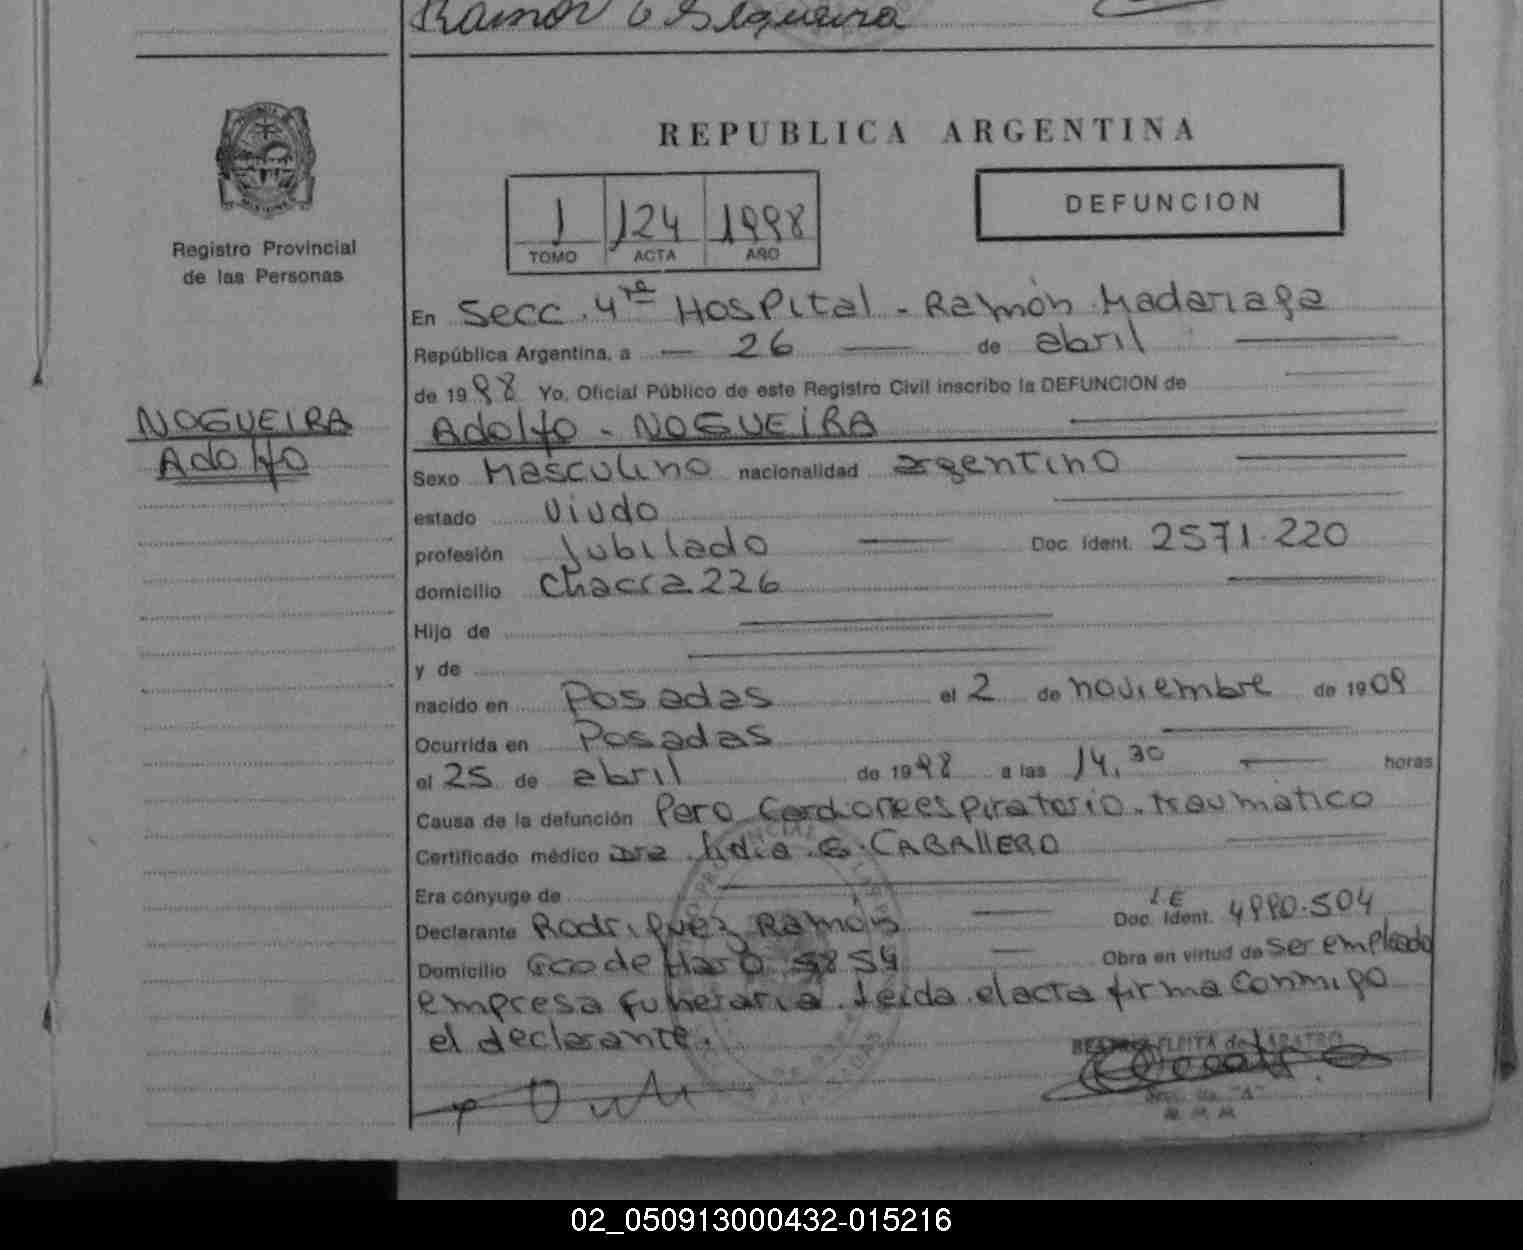 Ramón Sequeira
REPUBLICA ARGENTINA
1 124 1998
TOMO ACTA AÑO
DEFUNCION
Registro Provincial
de las Personas
En Secc. 4ta Hospital - Ramón Madariaga
República Argentina, a 26 de abril
de 1998 Yo, Oficial Público de este Registro Civil inscribo la DEFUNCION de
NOGUEIRA
Adolfo
Adolfo - NOGUEIRA
Sexo Masculino nacionalidad argentino
estado viudo
profesión Jubilado Doc. Ident. 2571.220
domicilio Chacra 226
Hijo de
y de
nacido en Posadas el 2 de noviembre de 1909
Ocurrida en Posadas
el 25 de abril de 1998 a las 14,30 horas
Causa de la defunción Paro Cardiorrespiratorio. traumático
Certificado médico Dra. Lidia G. CABALLERO
Era cónyuge de
Declarante Rodriguez Ramón L.E Doc. Ident. 4990.504
Domicilio Gco de Haro Obra en virtud de ser empleado
empresa funeraria. leida el acta firma conmigo
el declarante.
02_050913000432-015216